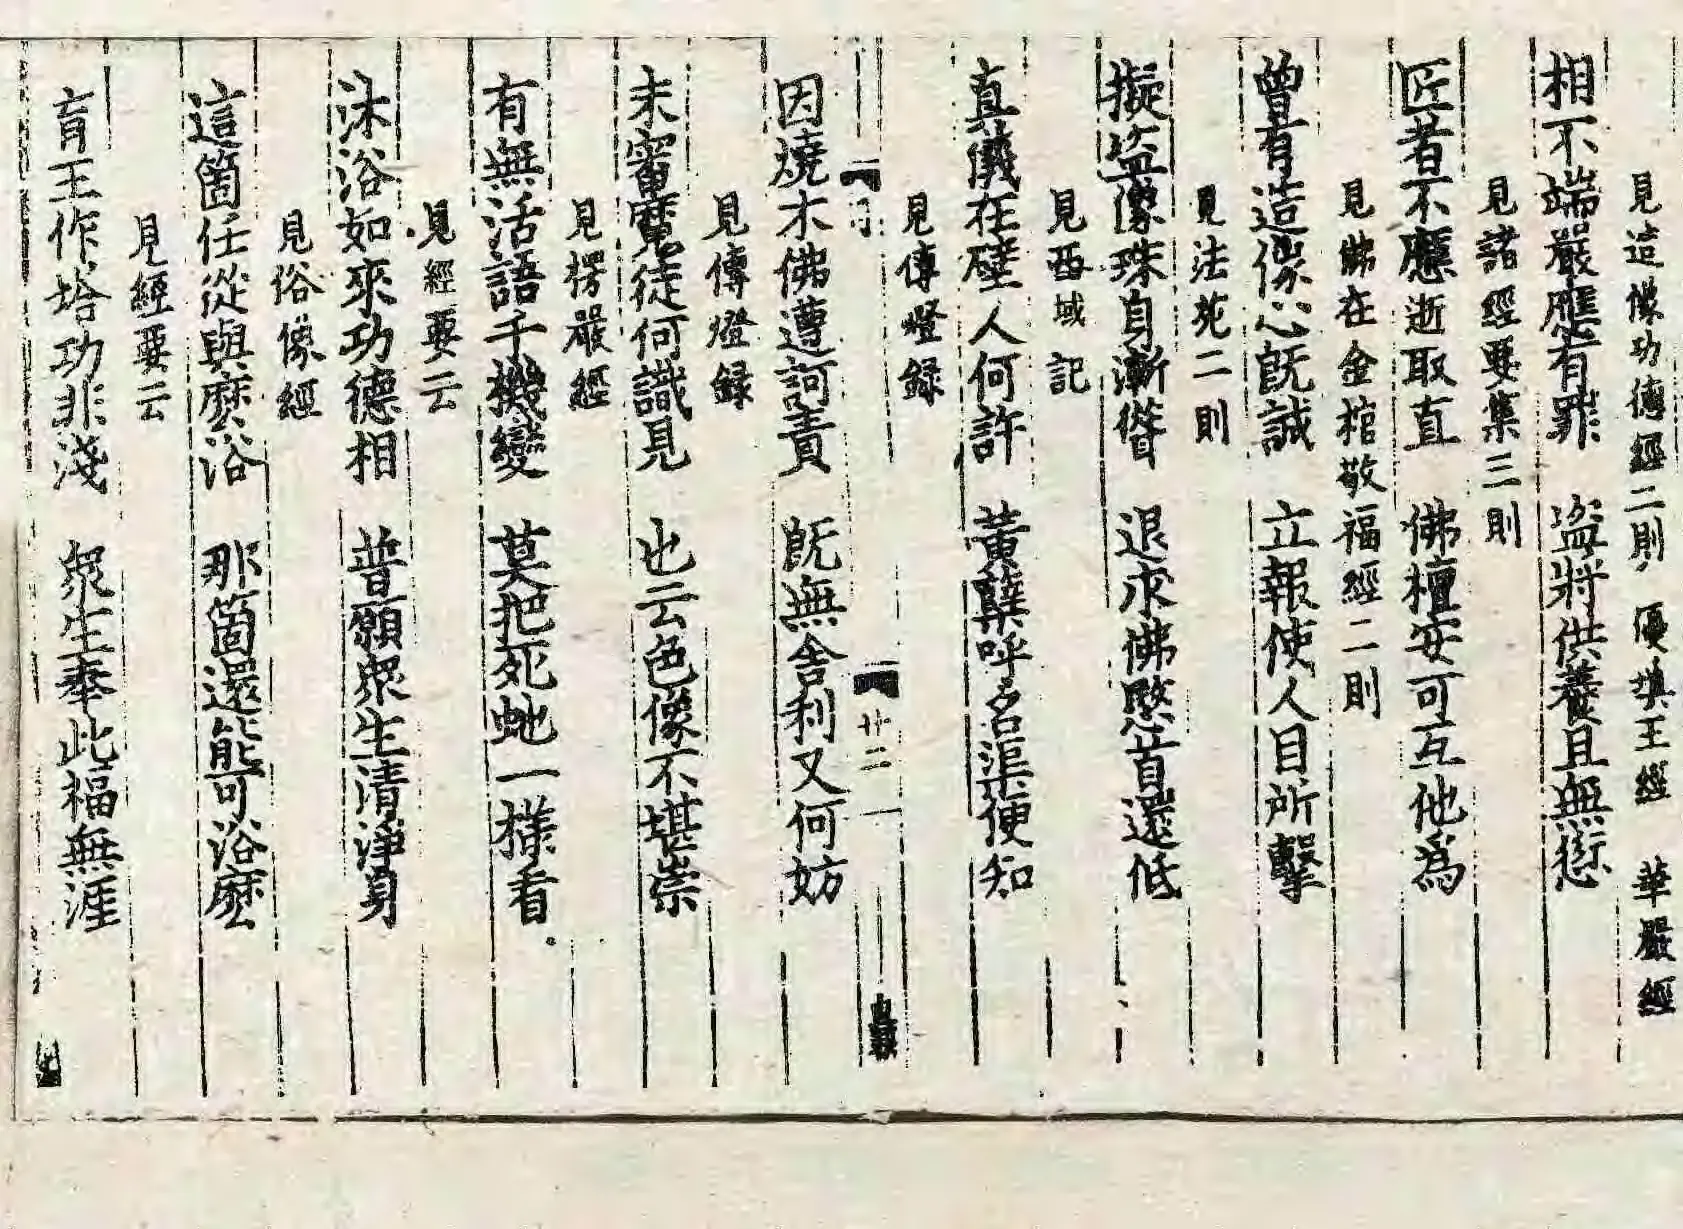 見造像功德經二則 優塡王經 華嚴經
相不端嚴應有罪 盜將供養且無愆
見諸經要集三則
匠者不應逝取直 佛檀安可互他爲
見佛在金棺敬福經二則
曾有造像心既誠 立報使人目所擊
見法苑二則
擬盜像珠自漸聳 退求佛愍首還低
見西域記
真儀在壁人何許 黃蘗呼名渠便知
見傳燈録
廿二
因燒木佛遵訶責 既無舍利又何妨
見傳燈録
未審魔徒何識見 也云色像不堪崇
見楞嚴經
有無活語千機變 莫把死虵一樣看
見經要云
沐浴如來功德相 普願衆生清淨身
見浴像經
這箇任從與麽浴 那箇還能可浴麽
見經要云
育王作塔功非淺 衆生奉此福無涯